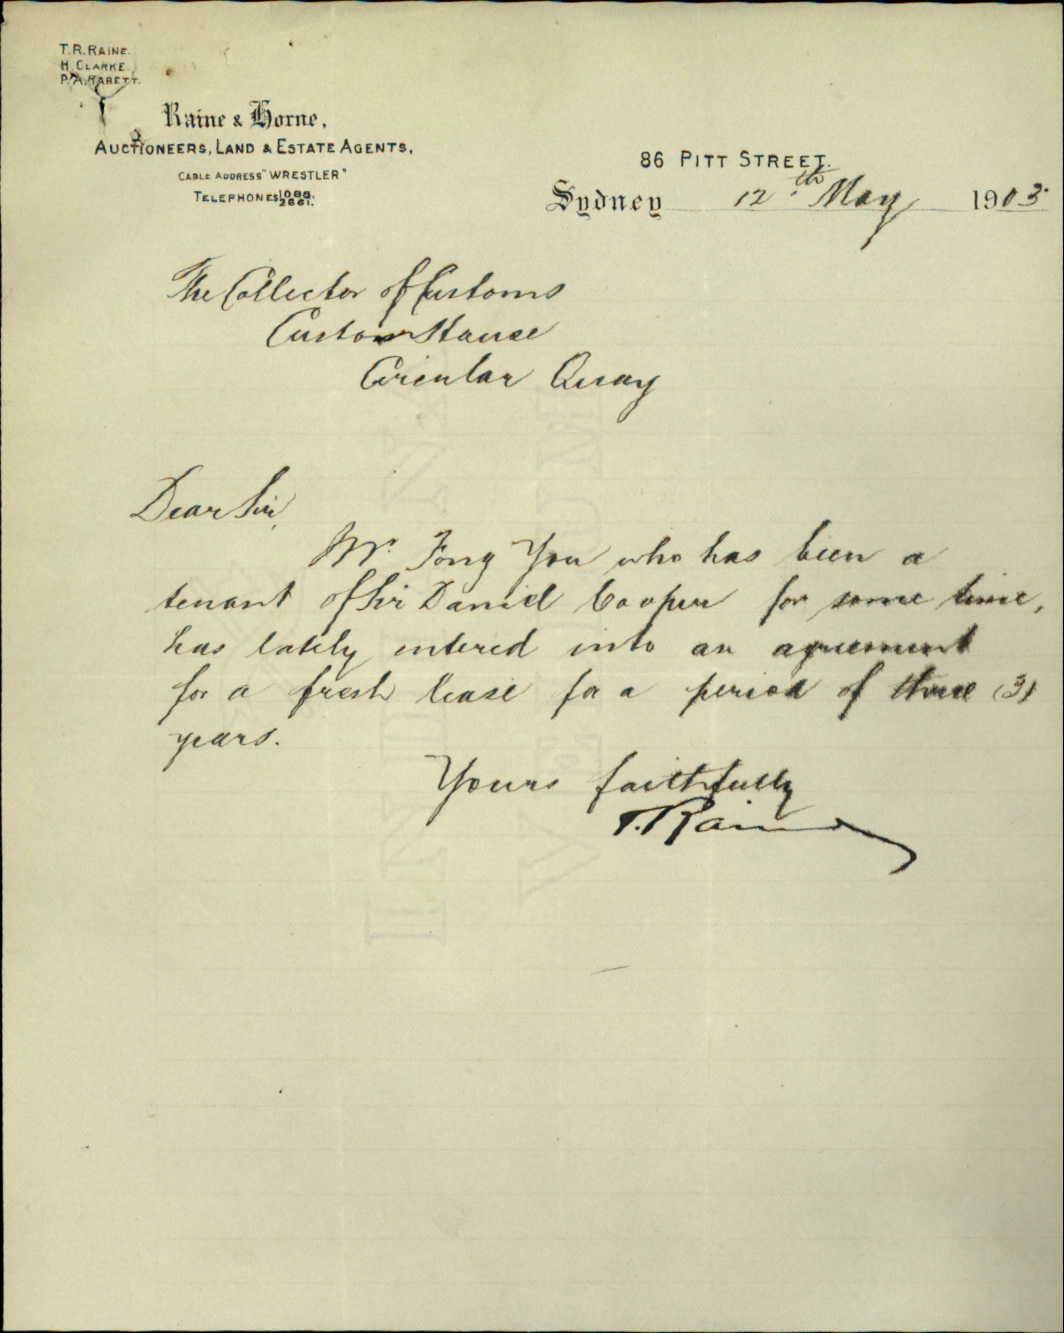 T. R. RAINE.
H. CLARKE.
P. A. RABETT.
Raine & Horne,
AUCTIONEERS, LAND & ESTATE AGENTS,
CABLE ADDRESS "WRESTLER"
TELEPHONES 1088.
2661.
86 PITT STREET.
Sydney 12th May 1903
The Collector of Customs
Custom House
Circular Quay
Dear Sir,
Mr. Fong You who has been a
tenant of Sir Daniel Cooper for some time,
has lately entered into an agreement
for a fresh lease for a period of three (3)
years.
Yours faithfully
T. Raine